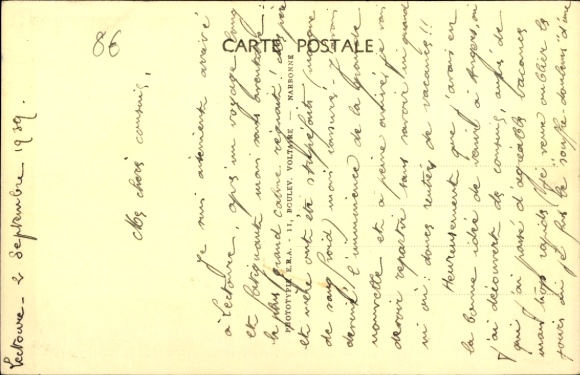 8€
CARTE POSTALE
PHOTOTYPIE E.R.A. - 11, BOULEV. VOLTAIRE — NARBONNE
Lectoure - 2 Septembre 1939.
Mes chers cousins,
Je suis arrivé
à Lectoure, après un voyage long
et fatiguant, mais sans aventure :
le plus grand calme régnait
et même ont été stupéfaits (manque
de sang froid) mais
devant l'imminence de la grande
nouvelle et à peine arrivés, je vais
devoir repartir sans savoir ni quand
ni où : douces rentrées de vacances !!
Heureusement que j'avais eu
la bonne idée de venir à Angers, où
j'ai découvert de cousins, auprès de
qui j'ai passé d'agréables vacances
mais trop rapides (je veux oublier les
jours où je fus le "souffre douleurs" d'une